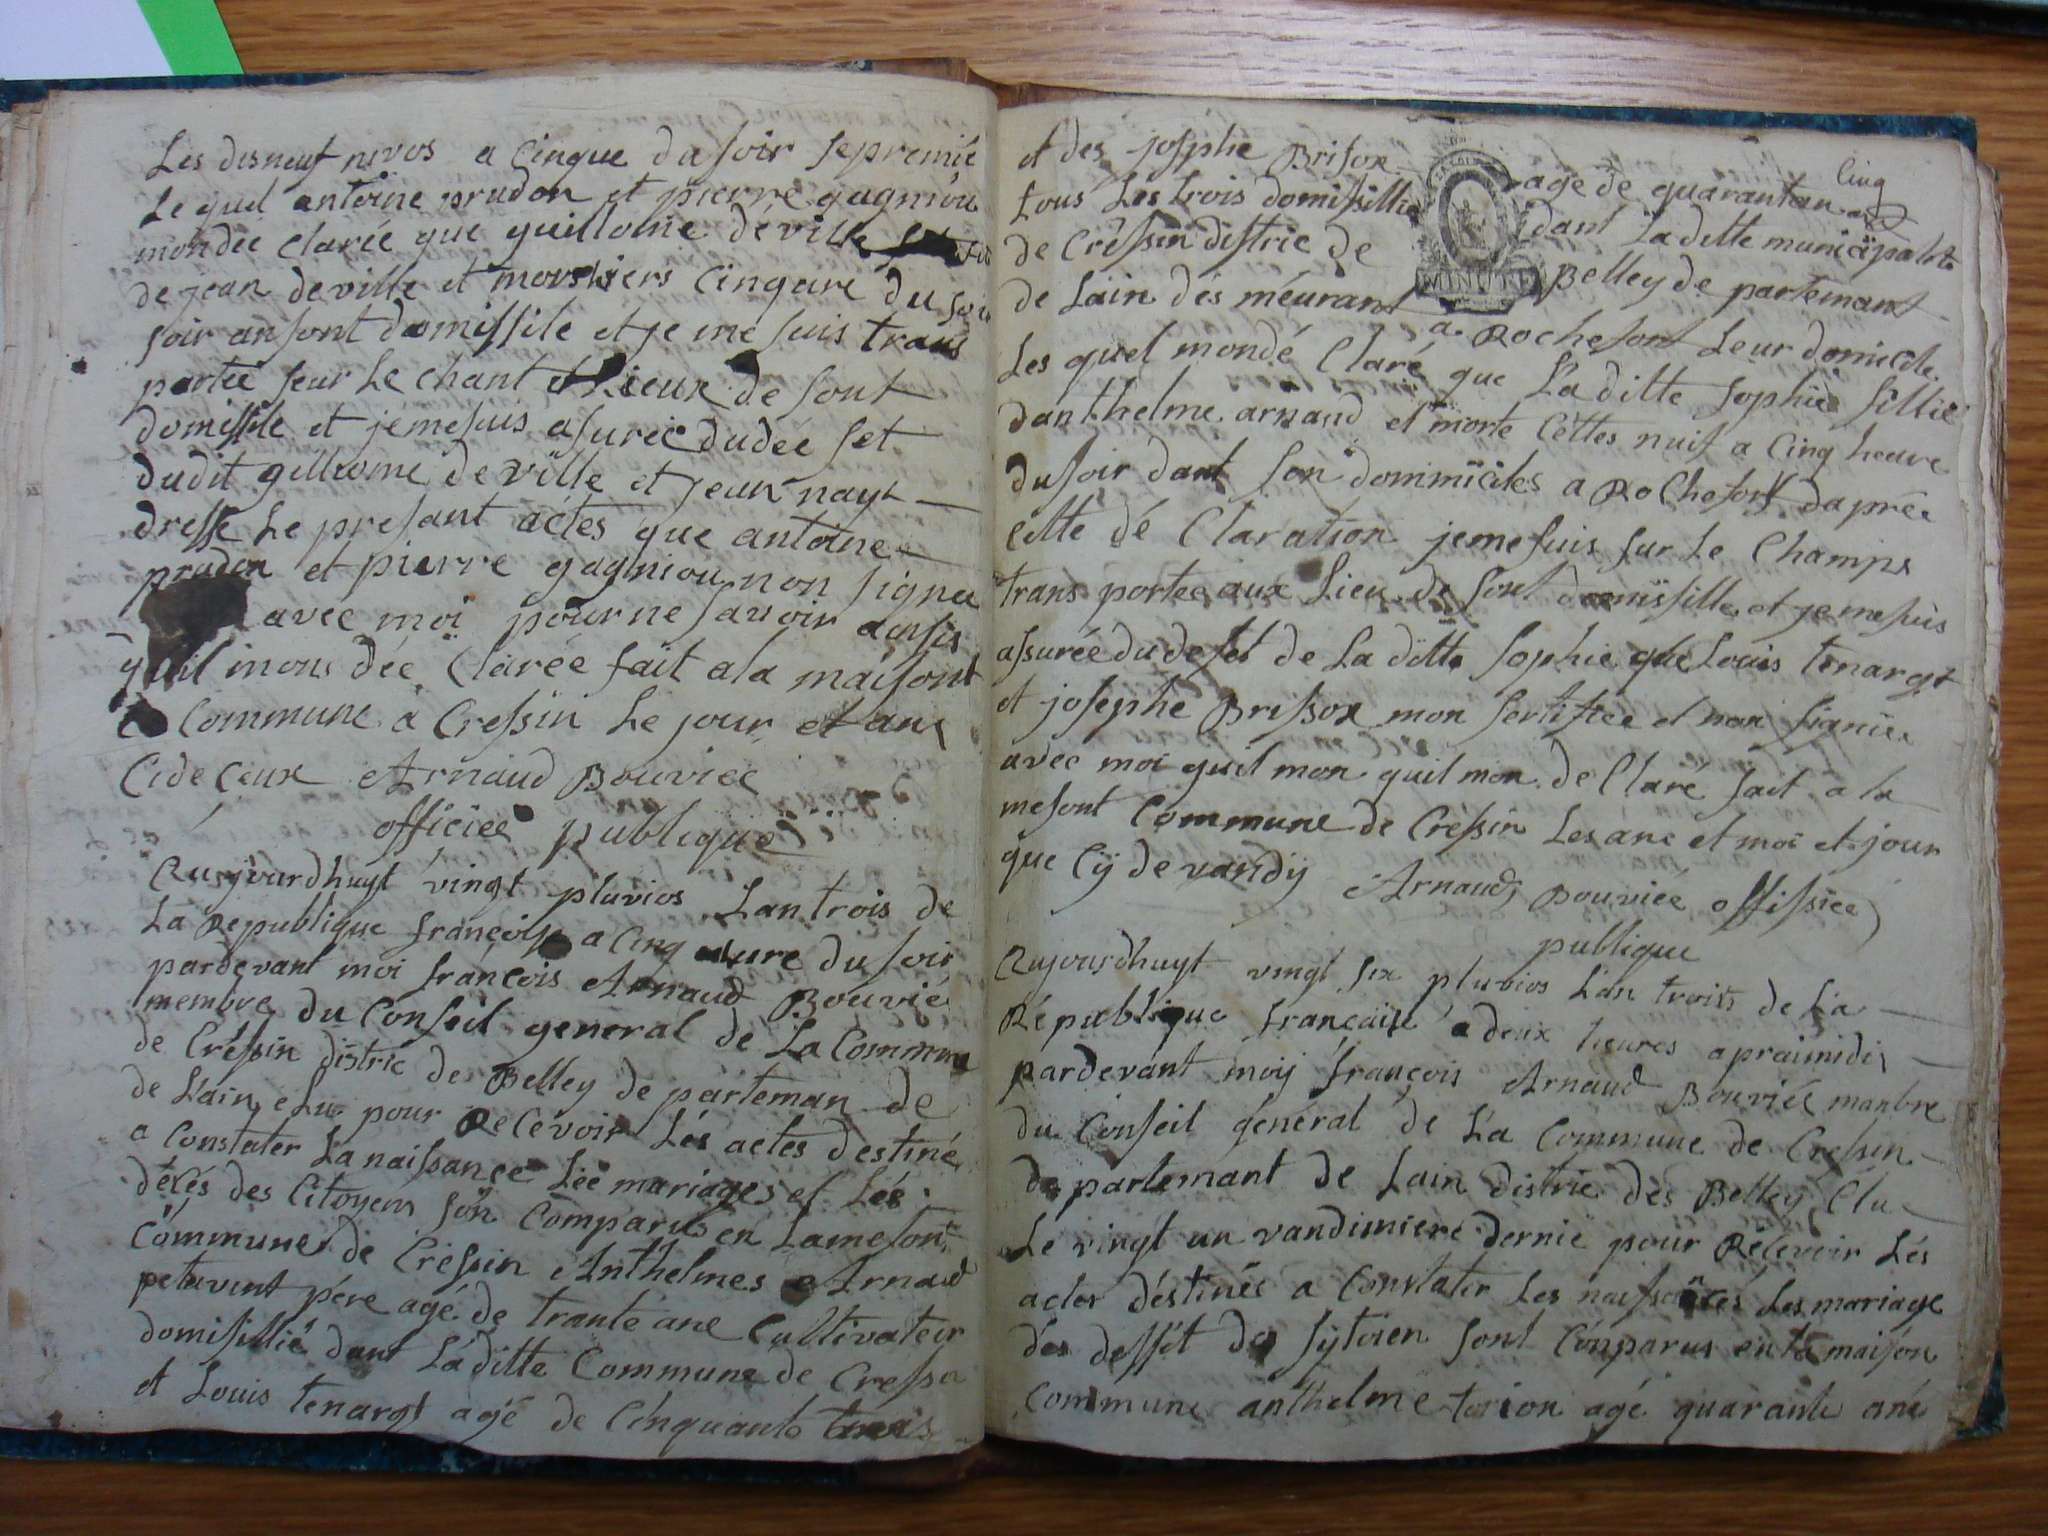 Les disneuf nivos a Cinque du soir sepremié
Le quel antoine prudon et pierre gagniou
mondée Clarée que guillome déville
de jean deville et mors hiers Cinqure du soir
soir ansont domissile et je me suis trans
portée seur Le chant et Lieux de sont
domissile et jemesuis asurée dudée set
dudit gillome de ville et jeux nayt
dresse Le presant actes que antoine
prudon et pierre gagniou non signee
avec moi pour ne savoir
quil mons dée Clarée fait ala maisont
Commune a Cressin Le jour et ans
Cide Ceux Arnaud Bouviee
officiee publique
Aujourdhuyt vingt pluvios Lan trois de
La Republique françoise a Cinq eure du soir
pardevant moi françois Arnaud Bouvié
membre du Conseil general de La Commune
de Cressin distric de Belley de parteman de
de Lain elu pour Recevoir Les actes destiné
a Constater La naissance Lée mariages et Lés
décés des Citoyens son Comparus en Lamesont
Commune de Cressin Anthelmes Arnaud
petuvent pére agé de trante ane Cultivateur
domisillié dant Laditte Commune de Cressin
et Louis tenargt agé de Cinquante trois
Cinq
et des josphe Brison agé de quarantan
tous Les trois domissillie dant Laditte municipalite
de Cressin distric de Belley de partemant
MINUTE
de Lain dés méurant a Rochefort Leur domicile
Les quel mondé Claré que La ditte sophie fillie
danthelme arnaud et morte Cettes nuit a Cinq heure
dusoir dant son dommiciles a Rochefort daprée
Cette dé Claration jemesuis sur Le Champs
trans portee aux Lieu de sont domissille et jemesuis
assurée du deset de La ditte sophie que Louis tenargt
et josephe Brisson mon sertifiee et non signiee
avec moi quil mon quil mon de Claré fait a la
mesont Commune de Cressin Les ane et moi et jour
que Cÿ de vandÿ Arnaud Bouviée offissiee
publique
Aujourdhuyt vingt six pluvios Lan trois de La
République française a deux heures apraimidi
pardevant moÿ françois Arnaud Bouviée manbre
du Conseil général de La Commune de Cressin
departemant de Lain distric des Belley Elu
Le vingt un vandimiere dernié pour Recevoir Lés
actes déstinée a Constater Les naissances Les mariage
dés dessét des sÿtoien sont Conparus en la maison
Commune anthelme torion agé quarante ané